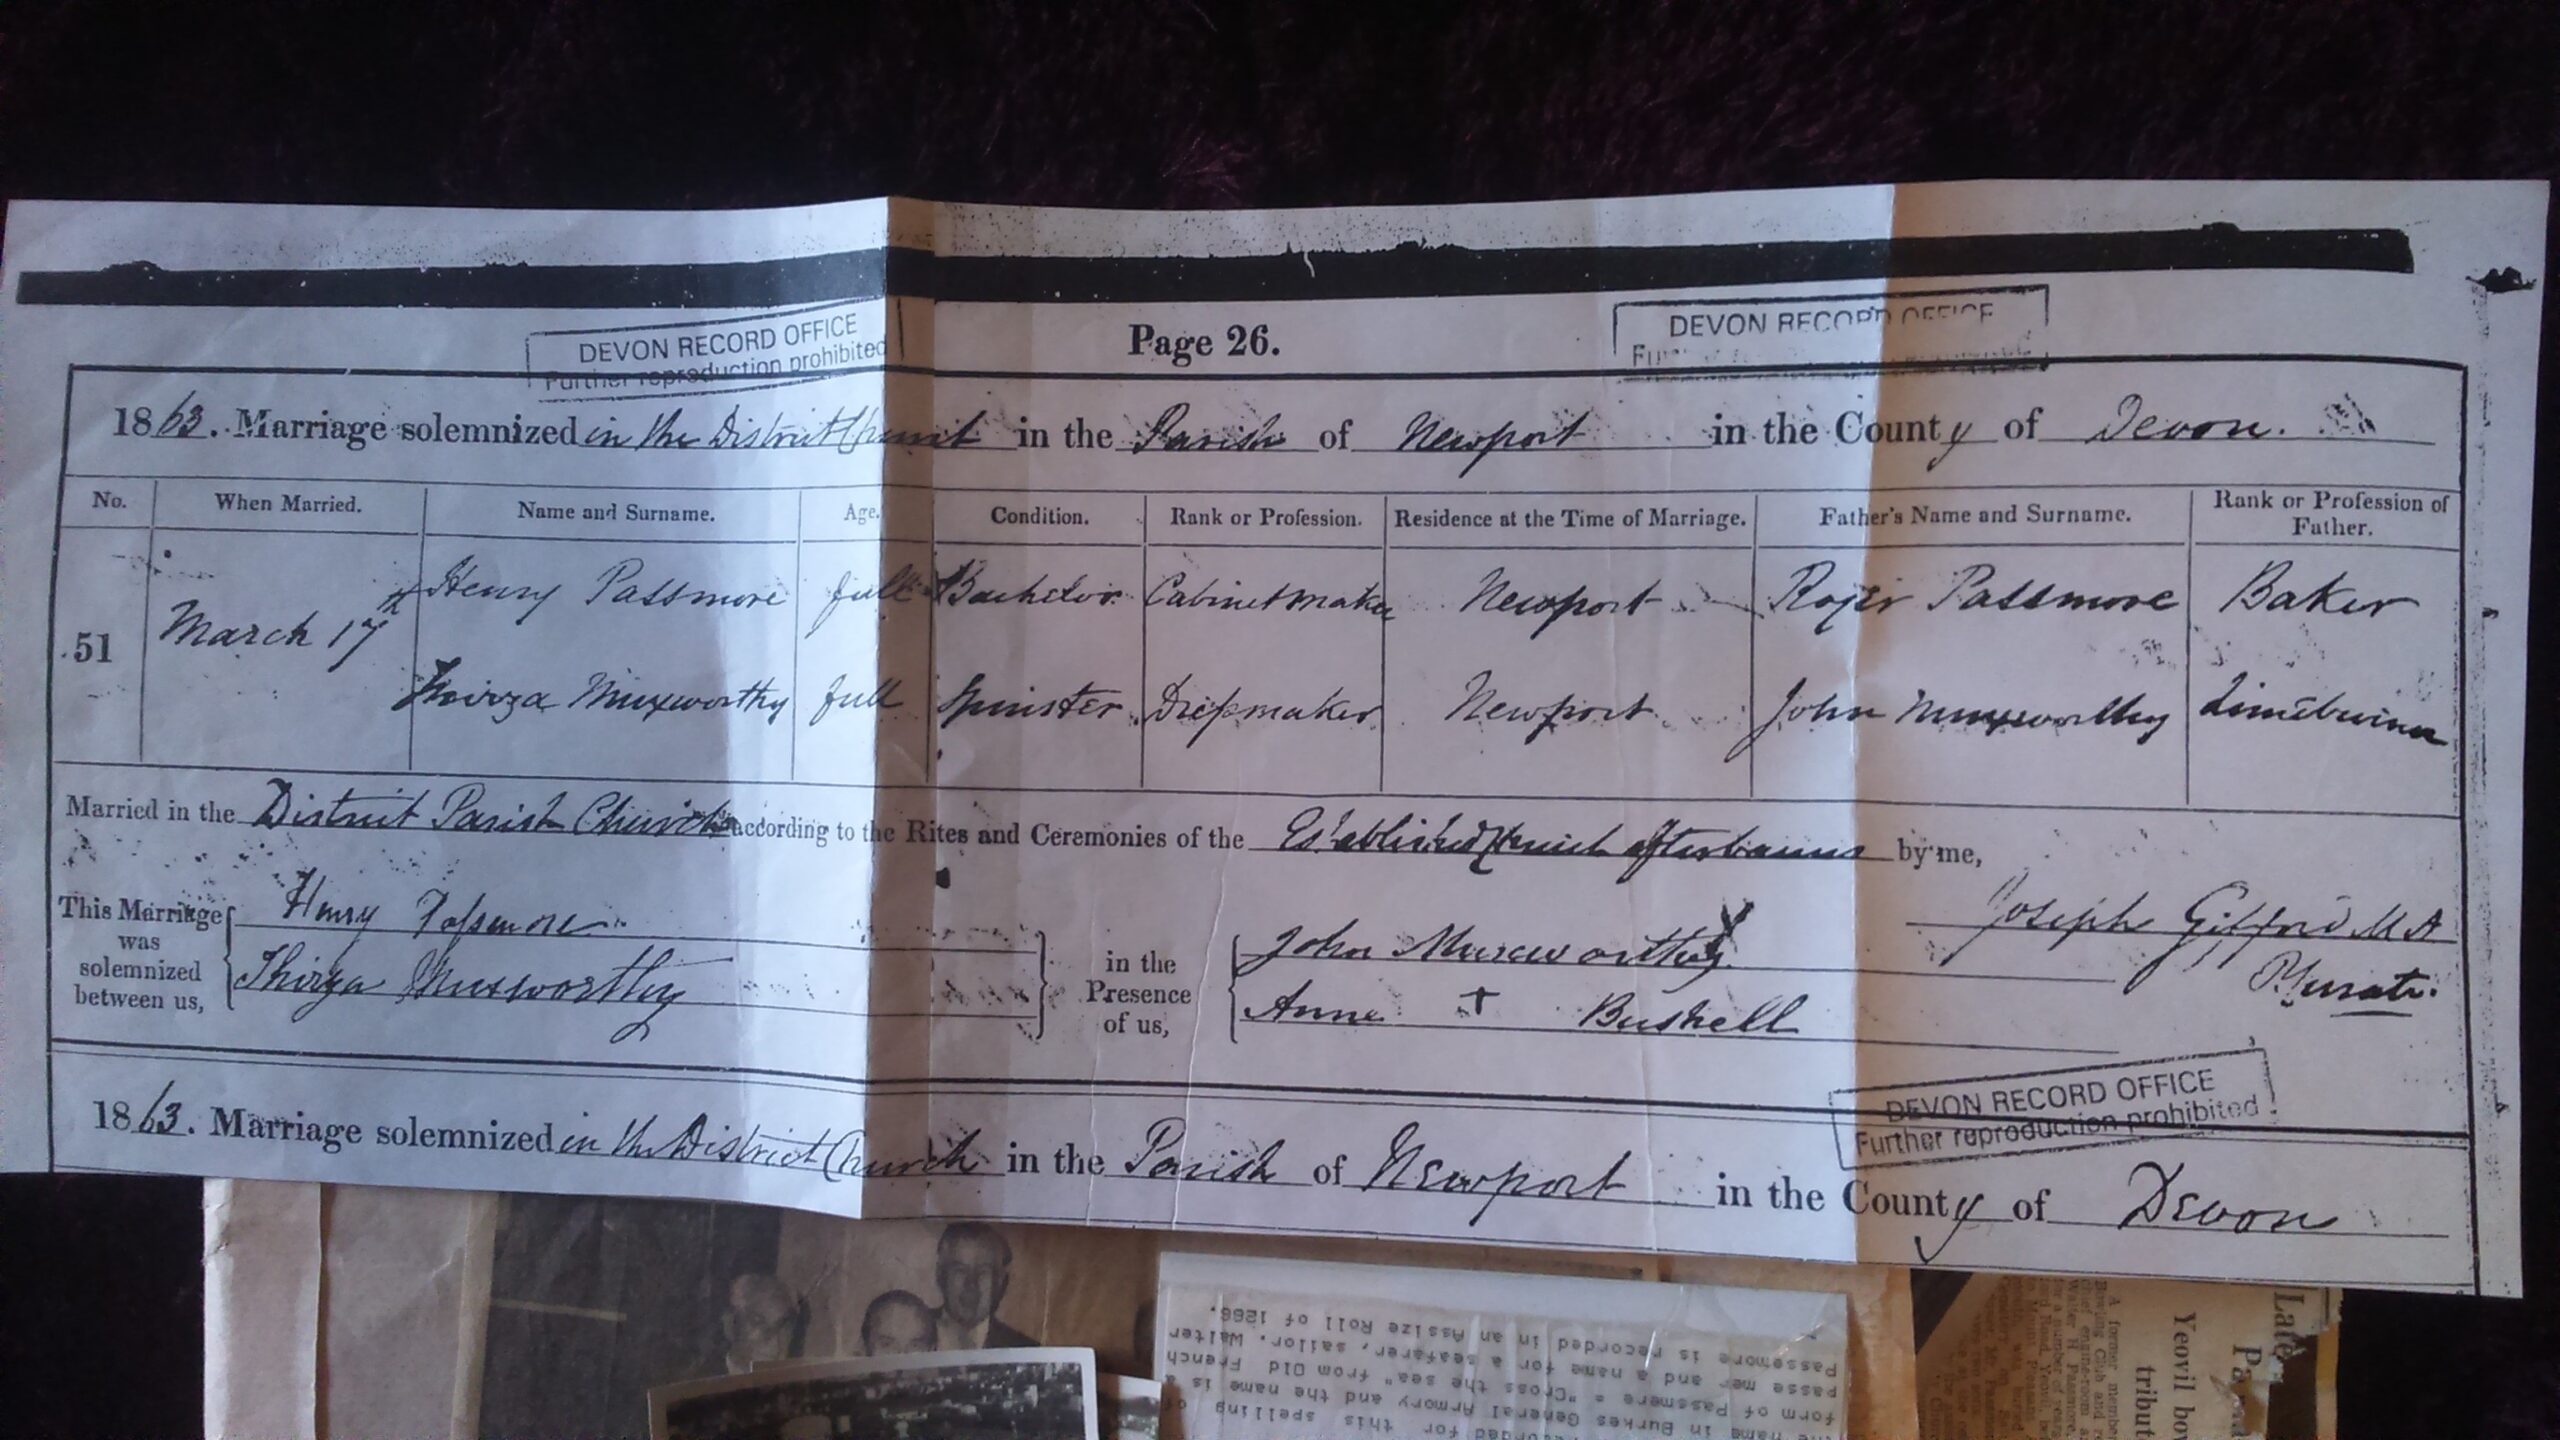 DEVON RECORD OFFICE
Further reproduction prohibited
Page 26.
DEVON RECORD OFFICE
1863. Marriage solemnized in the District Church in the Parish of Newport in the County of Devon.
No. When Married. Name and Surname. Age. Condition. Rank or Profession. Residence at the Time of Marriage. Father's Name and Surname. Rank or Profession of Father.
51 March 17th Henry Passmore full Bachelor Cabinet maker Newport Roger Passmore Baker
Thirza Muxworthy full Spinster Dressmaker Newport John Muxworthy Limeburner
Married in the District Parish Church according to the Rites and Ceremonies of the Established Church after banns by me,
Joseph Gifford M A
This Marriage was solemnized between us,
Henry Passmore
Thirza Muxworthy
in the Presence of us,
John Muxworthy
Anne + Bushell
DEVON RECORD OFFICE
Further reproduction prohibited
1863. Marriage solemnized in the District Church in the Parish of Newport in the County of Devon
recorded for this spelling of
name in Burkes General Armory and the name is a
form of Passmere = "Cross the sea" from Old French
passe mer and a name for a seafarer, sailor. Walter
Passemore is recorded in an Assize Roll of 1266.
Late
Yeovil bo
tribut
A former member
Bowling Club and
Walter H. Passmore,
for a number of years